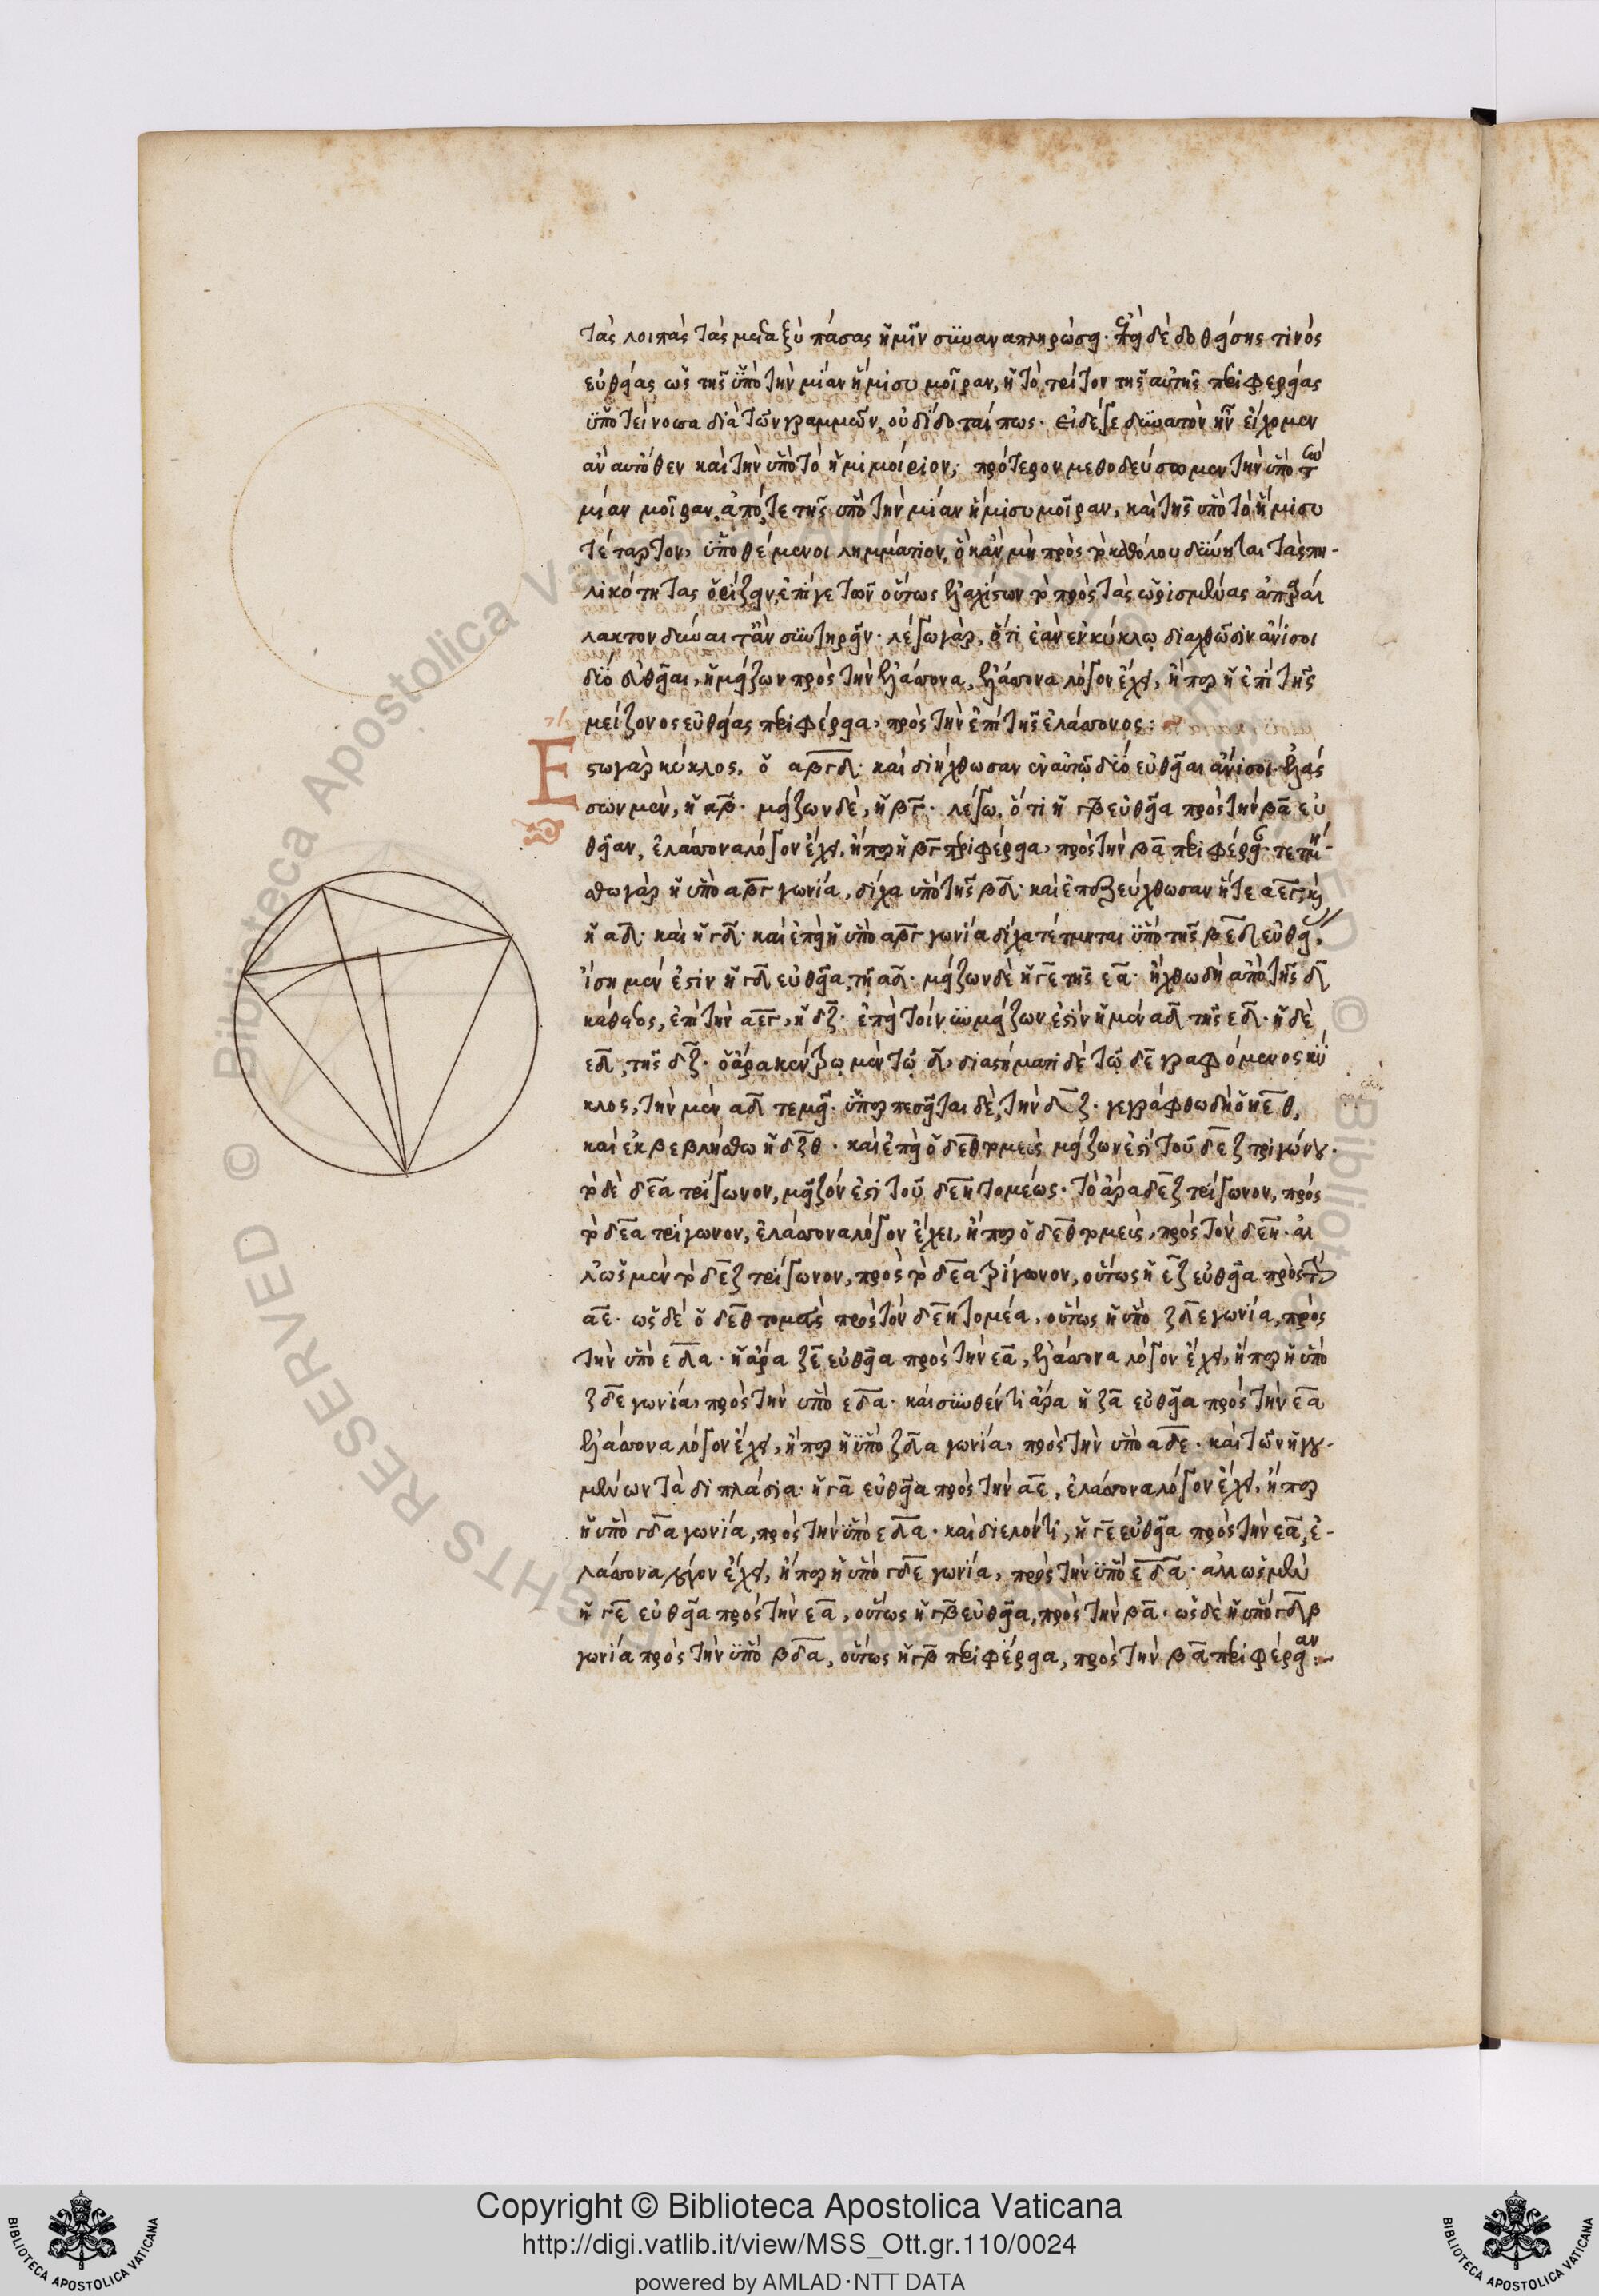 τὰς λοιπὰς τὰς μεταξὺ πάσας ἡμῖν συναναπληρώσει. ἐπεὶ δὲ δοθείσης τινὸς
εὐθείας ὡς τῆς ὑπὸ τὴν μίαν ἥμισυ μοῖραν, ἡ τὸ τρίτον τῆς αὐτῆς περιφερείας
ὑποτείνουσα διὰ τῶν γραμμῶν, οὐ δίδοταί πως. εἰ δέ γε δυνατὸν ἦν εἴχομεν
ἂν αὐτόθεν καὶ τὴν ὑπὸ τὸ ἡμιμοίριον, πρότερον μεθοδεύσωμεν τὴν ὑπὸ τὼ
μίαν μοῖραν, ἀπό τε τῆς ὑπὸ τὴν μίαν ἥμισυ μοῖραν, καὶ τῆς ὑπὸ τὸ ἥμισυ
τέταρτον, ὑποθέμενοι λημμάτιον, ὃ κἂν μὴ πρὸς τὸ καθόλου δύνηται τὰς πη-
λικότητας ὁρίζειν, ἐπί γε τῶν οὕτως ἐλαχίστων τὸ πρὸς τὰς ὡρισμένας ἀπαράλ
λακτον δύναιτ' ἂν συντηρεῖν. λέγω γάρ, ὅτι ἐὰν ἐν κύκλῳ διαχθῶσιν ἄνισοι
δύο εὐθεῖαι, ἡ μείζων πρὸς τὴν ἐλάττονα, ἐλάττονα λόγον ἔχει, ἤπερ ἡ ἐπὶ τῆς
μείζονος εὐθείας περιφέρεια, πρὸς τὴν ἐπὶ τῆς ἐλάττονος:
Ἔστω γὰρ κύκλος, ὁ αβγδ. καὶ διήχθωσαν ἐν αὐτῷ δύο εὐθεῖαι ἄνισοι. ἐλάσ
σων μὲν, ἡ αβ. μείζων δὲ, ἡ βγ. λέγω, ὅτι ἡ γβ εὐθεῖα πρὸς τὴν βα εὐ
θεῖαν, ἐλάττονα λόγον ἔχει, ἤπερ ἡ βγ περιφέρεια, πρὸς τὴν βα περιφέρει. τετμή-
σθω γὰρ ἡ ὑπὸ αβγ γωνία, δίχα ὑπὸ τῆς βδ. καὶ ἐπεζεύχθωσαν ἥ τε αεγ, καὶ
ἡ αδ. καὶ ἡ γδ. καὶ ἐπεὶ ἡ ὑπὸ αβγ γωνία δίχα τέτμηται ὑπὸ τῆς βεδ εὐθεί,
ἴση μέν ἐστιν ἡ γδ εὐθεῖα, τῇ αδ. μείζων δὲ ἡ γε τῆς εα. ἤχθω δὴ ἀπὸ τῆς δ
κάθετος, ἐπὶ τὴν αεγ, ἡ δζ. ἐπεὶ τοίνυν μείζων ἐστὶν ἡ μὲν αδ τῆς εδ. ἡ δὲ
εδ, τῆς δζ. ὁ ἄρα κέντρῳ μὲν τῷ δ, διαστήματι δὲ τῷ δε γραφόμενος κύ
κλος, τὴν μὲν αδ τεμεῖ. ὑπερπεσεῖται δὲ, τὴν δζ. γεγράφθω δὴ ὁ ηεθ,
καὶ ἐκβεβλήσθω ἡ δζθ. καὶ ἐπεὶ ὁ δεθ τομεὺς μείζων ἐστὶ τοῦ δεζ τριγώνου.
τὸ δὲ δεα τρίγωνον, μεῖζόν ἐστι τοῦ δεη τομέως. τὸ ἄρα δεζ τρίγωνον, πρὸς
τὸ δεα τρίγωνον, ἐλάττονα λόγον ἔχει, ἤπερ ὁ δεθ τομεὺς, πρὸς τὸν δεη. ἀλ
λ' ὡς μὲν τὸ δεζ τρίγωνον, πρὸς τὸ δεα τρίγωνον, οὕτως ἡ εζ εὐθεῖα πρὸς τὴν
αε. ὡς δὲ ὁ δεθ τομεὺς πρὸς τὸν δεη τομέα, οὕτως ἡ ὑπὸ ζδε γωνία, πρὸς
τὴν ὑπὸ εδα. ἡ ἄρα ζε εὐθεῖα πρὸς τὴν εα, ἐλάττονα λόγον ἔχει, ἤπερ ἡ ὑπὸ
ζδε γωνία, πρὸς τὴν ὑπὸ εδα. καὶ συνθέντι ἄρα ἡ ζα εὐθεῖα πρὸς τὴν εα
ἐλάττονα λόγον ἔχει, ἤπερ ἡ ὑπὸ ζδα γωνία, πρὸς τὴν ὑπὸ αδε. καὶ τῶν ἡγου-
μένων τὰ διπλάσια. ἡ γα εὐθεῖα πρὸς τὴν αε, ἐλάττονα λόγον ἔχει, ἤπερ
ἡ ὑπὸ γδα γωνία, πρὸς τὴν ὑπὸ εδα. καὶ διελόντι, ἡ γε εὐθεῖα πρὸς τὴν εα, ἐ-
λάττονα λόγον ἔχει, ἤπερ ἡ ὑπὸ γδε γωνία, πρὸς τὴν ὑπὸ εδα. ἀλλ' ὡς μὲν
ἡ γε εὐθεῖα πρὸς τὴν εα, οὕτως ἡ γβ εὐθεῖα, πρὸς τὴν βα. ὡς δὲ ἡ ὑπὸ γδβ
γωνία πρὸς τὴν ὑπὸ βδα, οὕτως ἡ γβ περιφέρεια, πρὸς τὴν βα περιφέρειαν:~
Copyright © Biblioteca Apostolica Vaticana
http://digi.vatlib.it/view/MSS_Ott.gr.110/0024
powered by AMLAD·NTT DATA